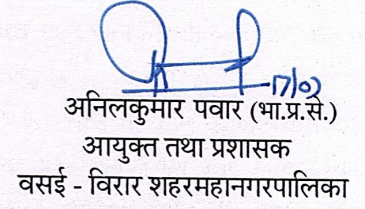 17/02
अनिलकुमार पवार (भा.प्र.से.)
आयुक्त तथा प्रशासक
वसई - विरार शहरमहानगरपालिका